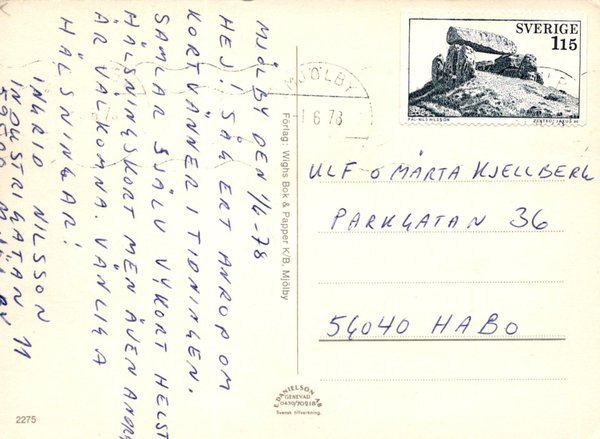 MJÖLBY DEN 1/6-78
HEJ! SÅG ERT ANROP OM
KORTVÄNNER I TIDNINGEN.
SAMLAR SJÄLV VYKORT HELST
HÄLSNINGSKORT MEN ÄVEN ANDRA
ÄR VÄLKOMNA. VÄNLIGA
HÄLSNINGAR!
INGRID NILSSON
INDUSTRIGATAN 11
59500 MJÖLBY
Förlag: Wighs Bok & Papper K/B, Mjölby
SVERIGE
115
PÅL-NILS NILSSON
MJÖLBY
1 6 78
ULF O MÄRTA KJELLBERG
PARKGATAN 36
54040 HABO
E. DANIELSON AB
GENEVAD
0430/70218
Svensk tillverkning.
2275